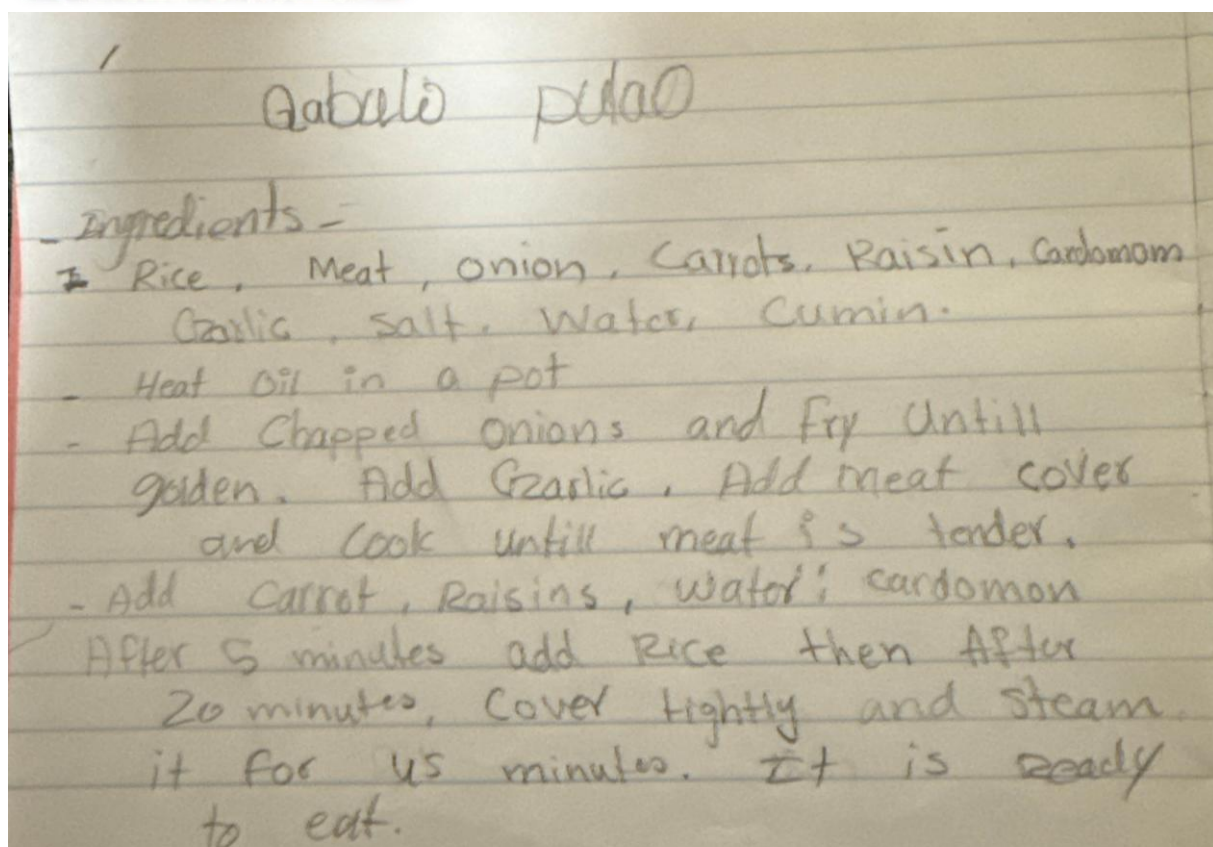 Qabulo pulao
- Ingredients -
Rice, Meat, onion, Carrots, Raisin, Cardomom
Garlic, salt, Water, Cumin.
- Heat oil in a pot
- Add Chapped onions and Fry Untill
golden. Add Garlic. Add meat cover
and Cook untill meat is tender.
- Add Carrot, Raisins, water, cardomon
After 5 minutes add Rice then After
20 minutes, Cover tightly and Steam
it for 45 minutes. It is Ready
to eat.